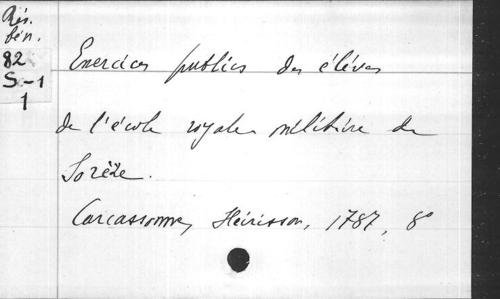 Rés.
bén.
82
S-1
1
Exercices publics des élèves
de l'école royale militaire de
Sorèze.
Carcassonne, Heirisson, 1787, 8°